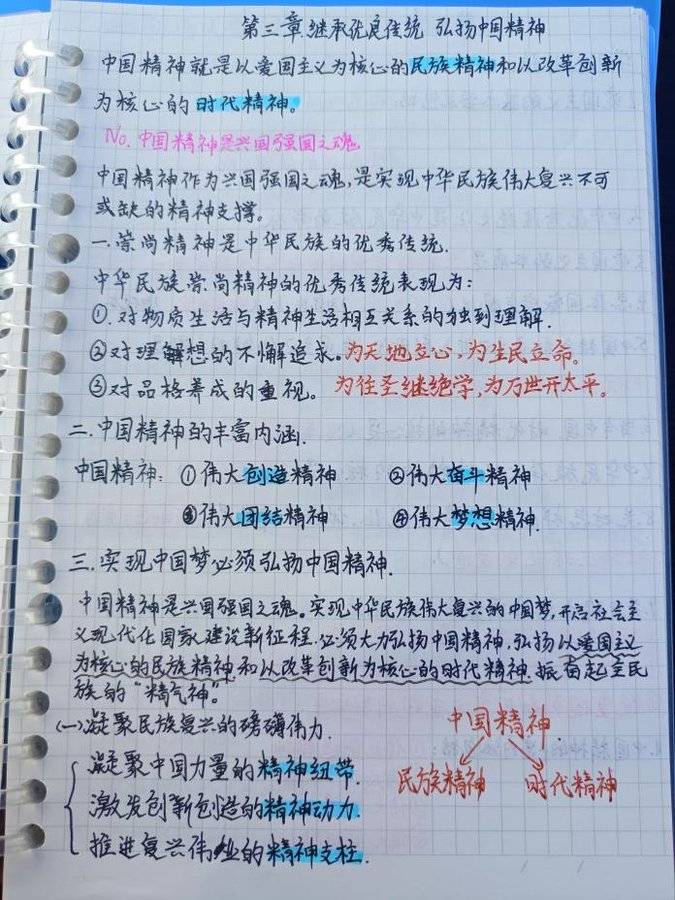 第三章 继承优良传统 弘扬中国精神
中国精神就是以爱国主义为核心的民族精神和以改革创新
为核心的时代精神。
No. 中国精神是兴国强国之魂
中国精神作为兴国强国之魂,是实现中华民族伟大复兴不可
或缺的精神支撑。
一.崇尚精神是中华民族的优秀传统.
中华民族崇尚精神的优秀传统表现为:
①.对物质生活与精神生活相互关系的独到理解.
②对理解想的不懈追求。为天地立心,为生民立命。
③对品格养成的重视。 为往圣继绝学,为万世开太平。
二.中国精神的丰富内涵.
中国精神: ①伟大创造精神 ②伟大奋斗精神
③伟大团结精神 ④伟大梦想精神.
三.实现中国梦必须弘扬中国精神.
中国精神是兴国强国之魂。实现中华民族伟大复兴的中国梦,开启社会主
义现代化国家建设新征程.必须大力弘扬中国精神,弘扬以爱国主义
为核心的民族精神和以改革创新为核心的时代精神.振奋起全民
族的“精气神”。
(一)凝聚民族复兴的磅礴伟力.
凝聚中国力量的精神纽带.
激发创新创造的精神动力.
推进复兴伟业的精神支柱.
中国精神.
民族精神 时代精神